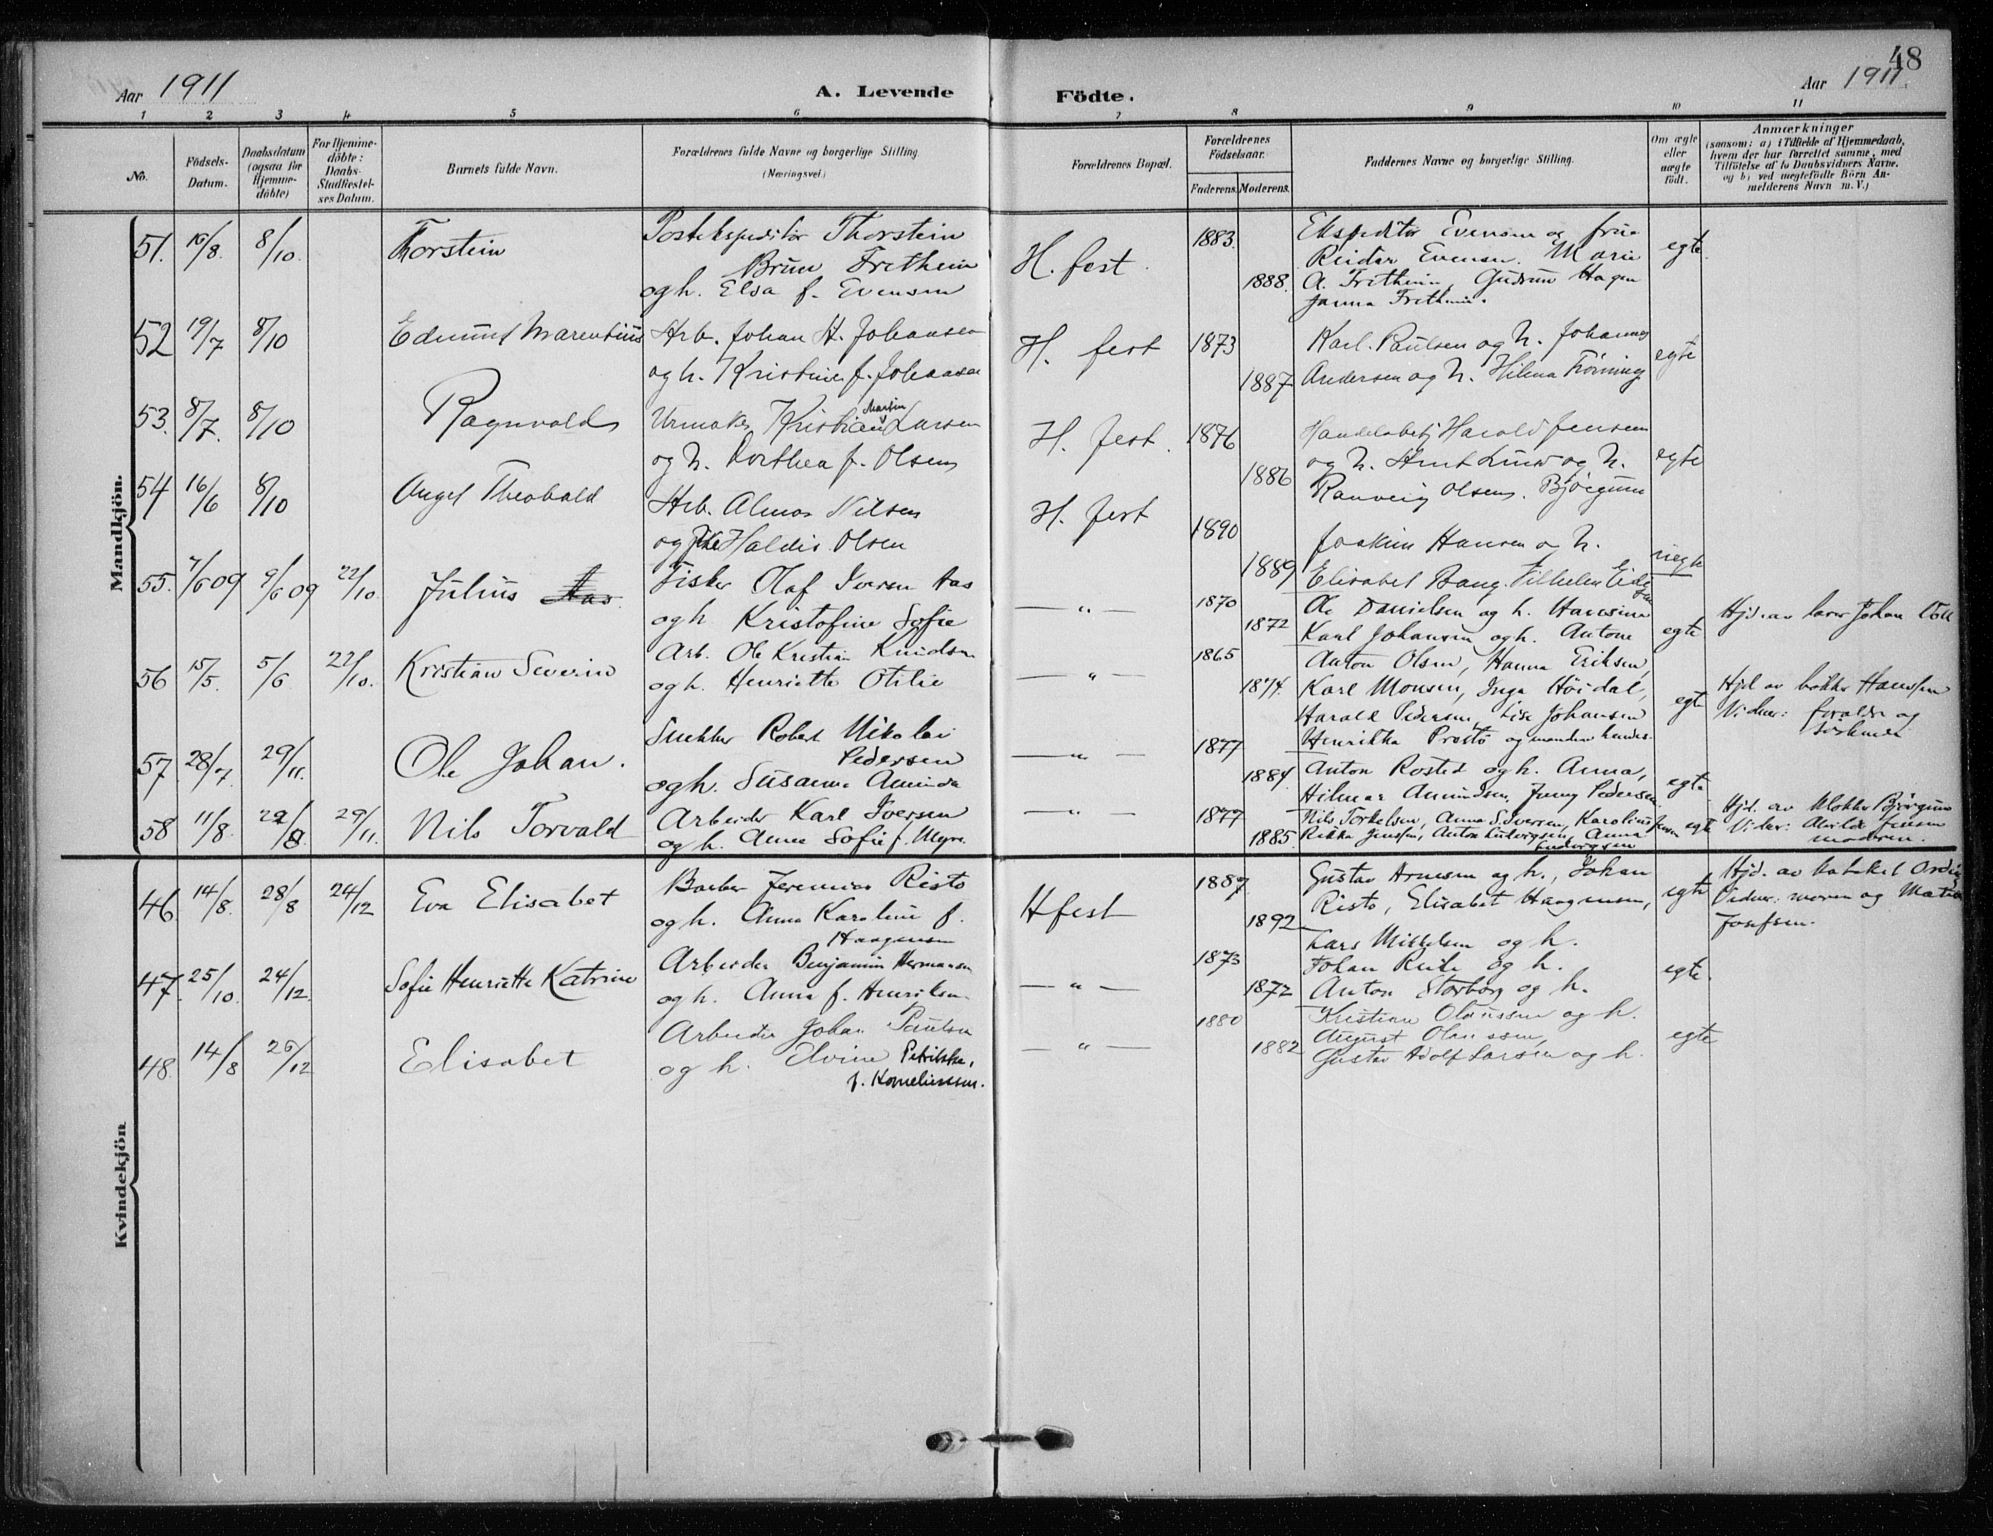 48
Aar 1911
A. Levende Födte.
Aar 1911.
1 2 3 4 5 6 7 8 9 10 11
No.
Födsels-
Datum.
Daabsdatum
(ogsaa for
Hjemme-
döbte)
For Hjemme-
döbte:
Daabs-
Stadfæstel-
ses Datum.
Barnets fulde Navn.
Forældrenes fulde Navne og borgerlige Stilling.
(Næringsvei.)
Forældrenes Bopæl.
Forældrenes
Födselsaar.
Faderens. Moderens.
Faddernes Navne og borgerlige Stilling.
Om ægte
eller
uægte
födt.
Anmærkninger
(saasom: a) i Tilfælde af Hjemmedaab,
hvem der har forrettet samme, med
Tilföielse af to Daabsvidners Navne.
og b) ved uægtefödte Börn An-
melderens Navn m. V.)
Mandkjön.
51. 16/8. 8/10. Thorstein
Postekspeditör Thorstein
Brun Fretheim
og h. Elsa f. Evensen
H. fest.
1883.
1888.
Ekspeditör Evensen og frue
Reidar Evensen. Marie
A. Fretheim, Gudrun Hagen
Janna Fretheim.
egte.
52 19/7 8/10 Edmund Marentius
Arb. Johan H. Johansen
og h. Kristine f. Johansen
H. fest
1873
1887
Karl. Paulsen og h. Johannes
Andersen og h. Hilma Trönning
egte
53. 8/7. 8/10 Ragnvald
Urmaker Kristian Martin Larsen
og h. Dorthea f. Olsen
H. fest.
1876
1886
Handelsbetj Harald Jensen
og h.
Ranveig Olsen. Bjørgum
egte
54 16/6 8/10 Angel Theobald
Arb. Almar Nilsen
og Pike Haldis Olsen
H. fest
1890
1889
Joakim Hansen o h.
Elisabet Bang.
uegte
55. 7/6 09 9/6 09 22/10. Julius Aas.
Fisker Olaf Iversen Aas
og h. Kristofine Sofie
— " —
1870
1872
Ole Danielsen og h. Hansine
Karl Johansen og h. Antone
egte
Hjd. av lærer Johan
56 15/5. 5/6 22/10. Kristian Severin
Arb. Ole Kristian Knudsen
og h. Henriette Otilie
— " —
1865
1874.
Anton Olsen, Hanna Eriksen,
Karl Monsen, Inga Höidal,
Harald Pedersen, Lise Johansen
egte
Hjd av Hanssen
Vidner: foraldre og
57 28/7. 29/11. Ole Johan.
Snekker Robert Nikolai
Pedersen
og h. Susanna Aminda
— " —
1877
1884
Henrikka Prestö og manden hendes.
Anton Rosted og h. Anna,
Hilmar Amundsen, Jenny Pedersen.
egte
58 11/8. 22/8 29/11. Nils Torvald
Arbeider Karl Iversen
og h. Anna Sofie f. Myre.
— " —
1877
1885.
Nils Torkelsen, Anna Sivertsen, Karolius Jensen
Rikka Jenssen, Anton Ludvigsen, Anna
Ludvigsen
egte
Hjd. av klokker Bjørgum
Vidner: Alvilde Jensen
moderen.
Kvindekjön
46 14/8. 28/8 24/12 Eva Elisabet
Barber Jeremias Ristö
og h. Anna Karoline f.
Haagensen
Hfest
1887
1892
Gustav Arnesen og h., Johan
Ristö, Elisabet Haagensen,
egte
Hjd. av
Vidner. moren og
Josefsen.
47. 25/10. 24/12. Sofie Henriette Katrine
Arbeider Benjamin Hermansen
og h. Anna f. Henriksen
— " —
1873
1872
Lars Mikkelsen og h.
Johan Reite og h.
Anton Storborg og h.
egte.
48. 14/8 26/12 Elisabet
Arbeider Johan Paulsen
og h. Elvine Petrikke,
f. Korneliussen.
— " —
1880
1882
Kristian Olaussen og h.
August Olaussen,
Gustav Adolf Larsen og h.
egte